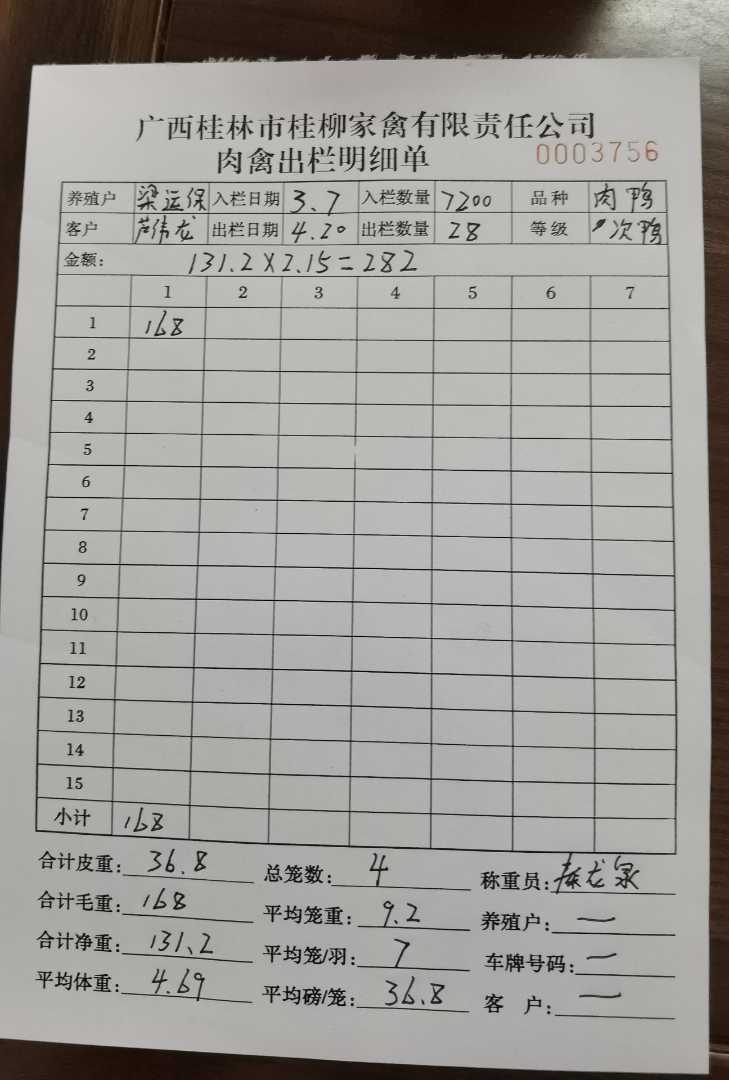 广西桂林市桂柳家禽有限责任公司
肉禽出栏明细单 0003756
养殖户 梁运保 入栏日期 3.7 入栏数量 7200 品种 肉鸭
客户 芦伟龙 出栏日期 4.20 出栏数量 28 等级 次鸭
金额: 131.2×2.15=282
1 2 3 4 5 6 7
1 168
2
3
4
5
6
7
8
9
10
11
12
13
14
15
小计 168
合计皮重: 36.8 总笼数: 4 称重员: 龙泉
合计毛重: 168 平均笼重: 9.2 养殖户: 一
合计净重: 131.2 平均笼/羽: 7 车牌号码: 一
平均体重: 4.69 平均磅/笼: 36.8 客 户: 一